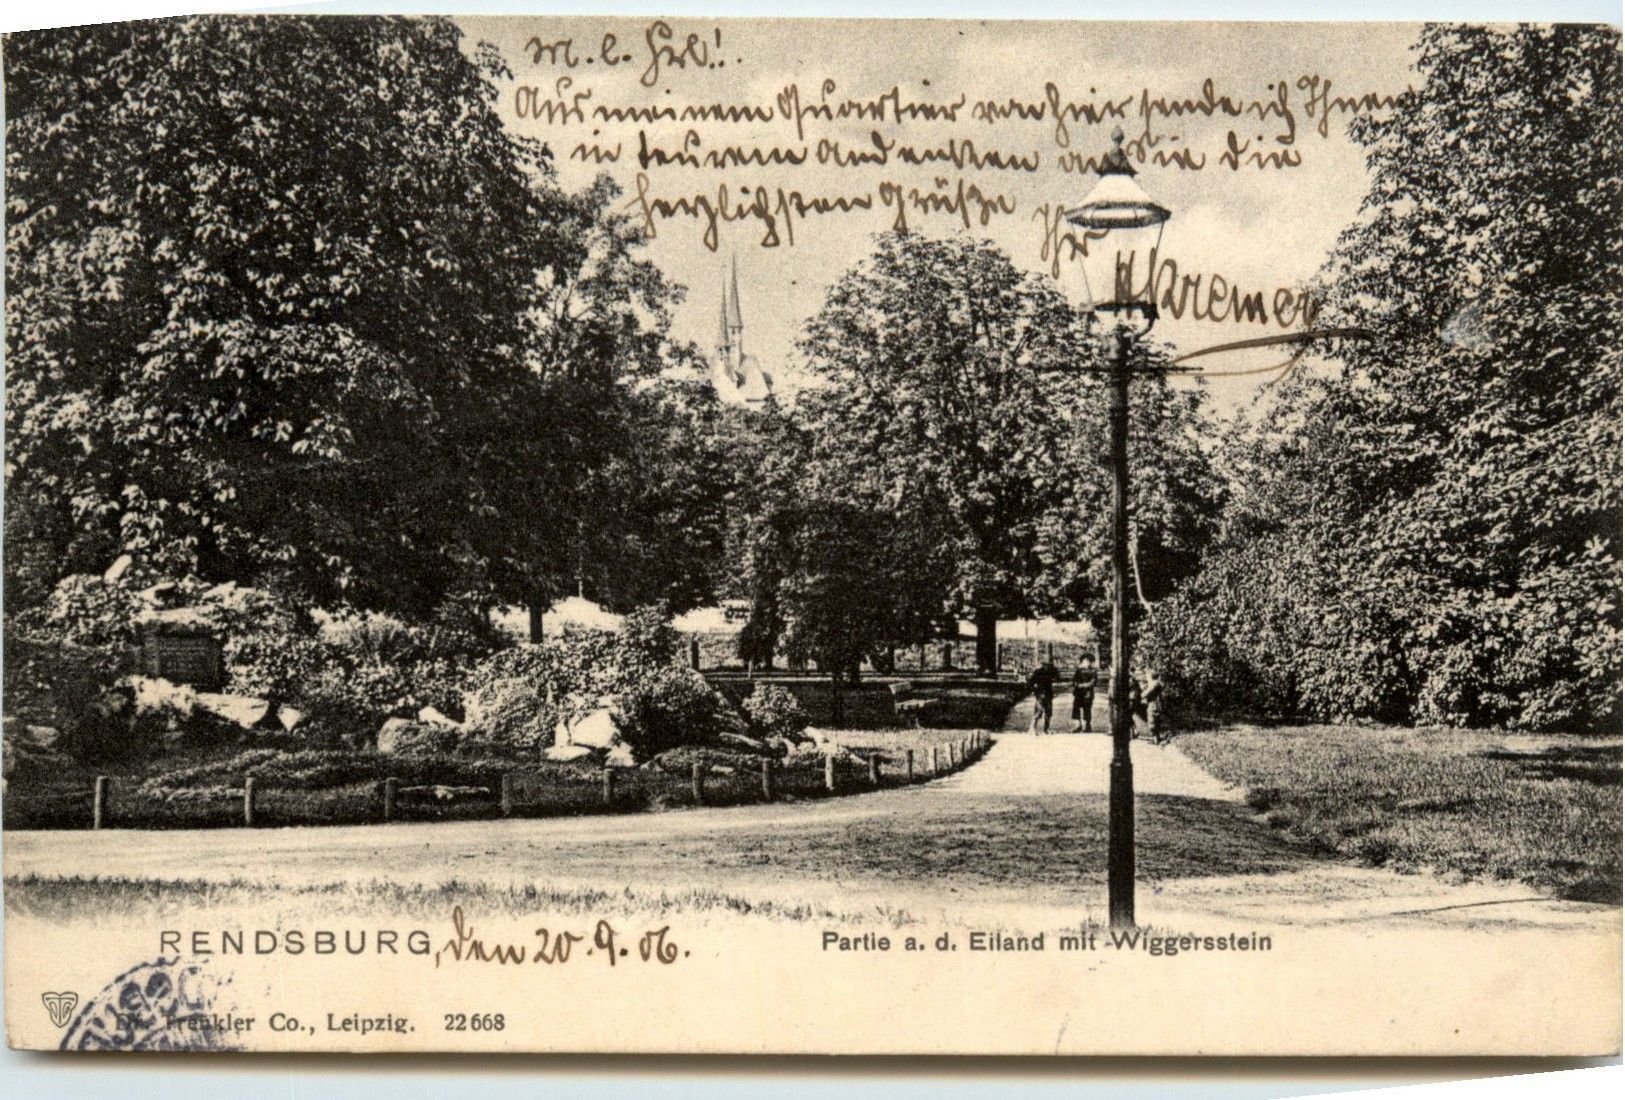 M. l. Frl!.
Aus meinem Quartier von hier sende ich Ihnen
in teurem Andenken an Sie die
herzlichsten Grüße Ihr
Kremer
RENDSBURG, den 20.9.06.
Partie a. d. Eiland mit Wiggersstein
Dr. Trenkler Co., Leipzig. 22668